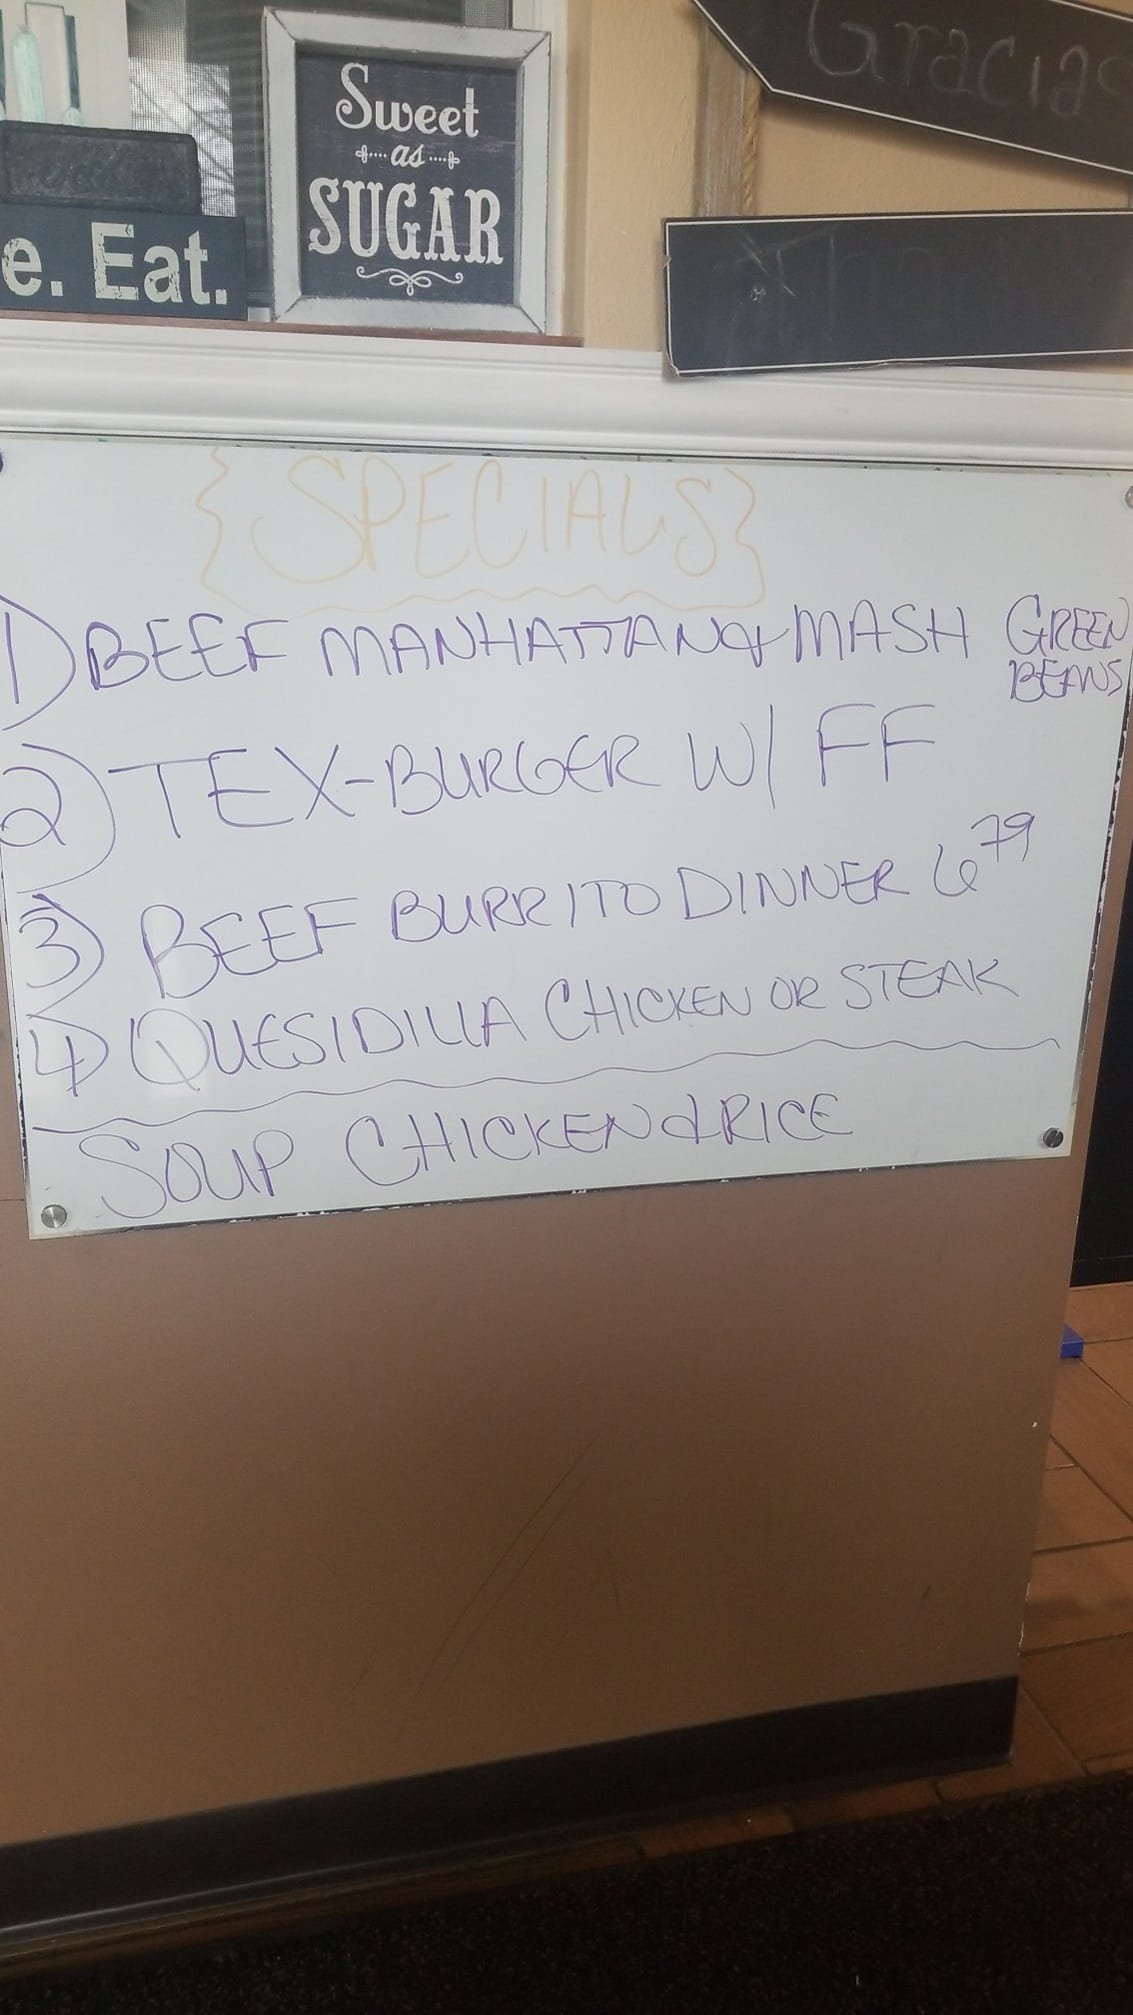 Gracias
Sweet
as
SUGAR
e. Eat.
{SPECIALS}
1) BEEF MANHATTAN & MASH GREEN
BEANS
2) TEX-BURGER W/ FF
3) BEEF BURRITO DINNER 6 79
4) QUESIDILLA CHICKEN OR STEAK
SOUP CHICKEN & RICE